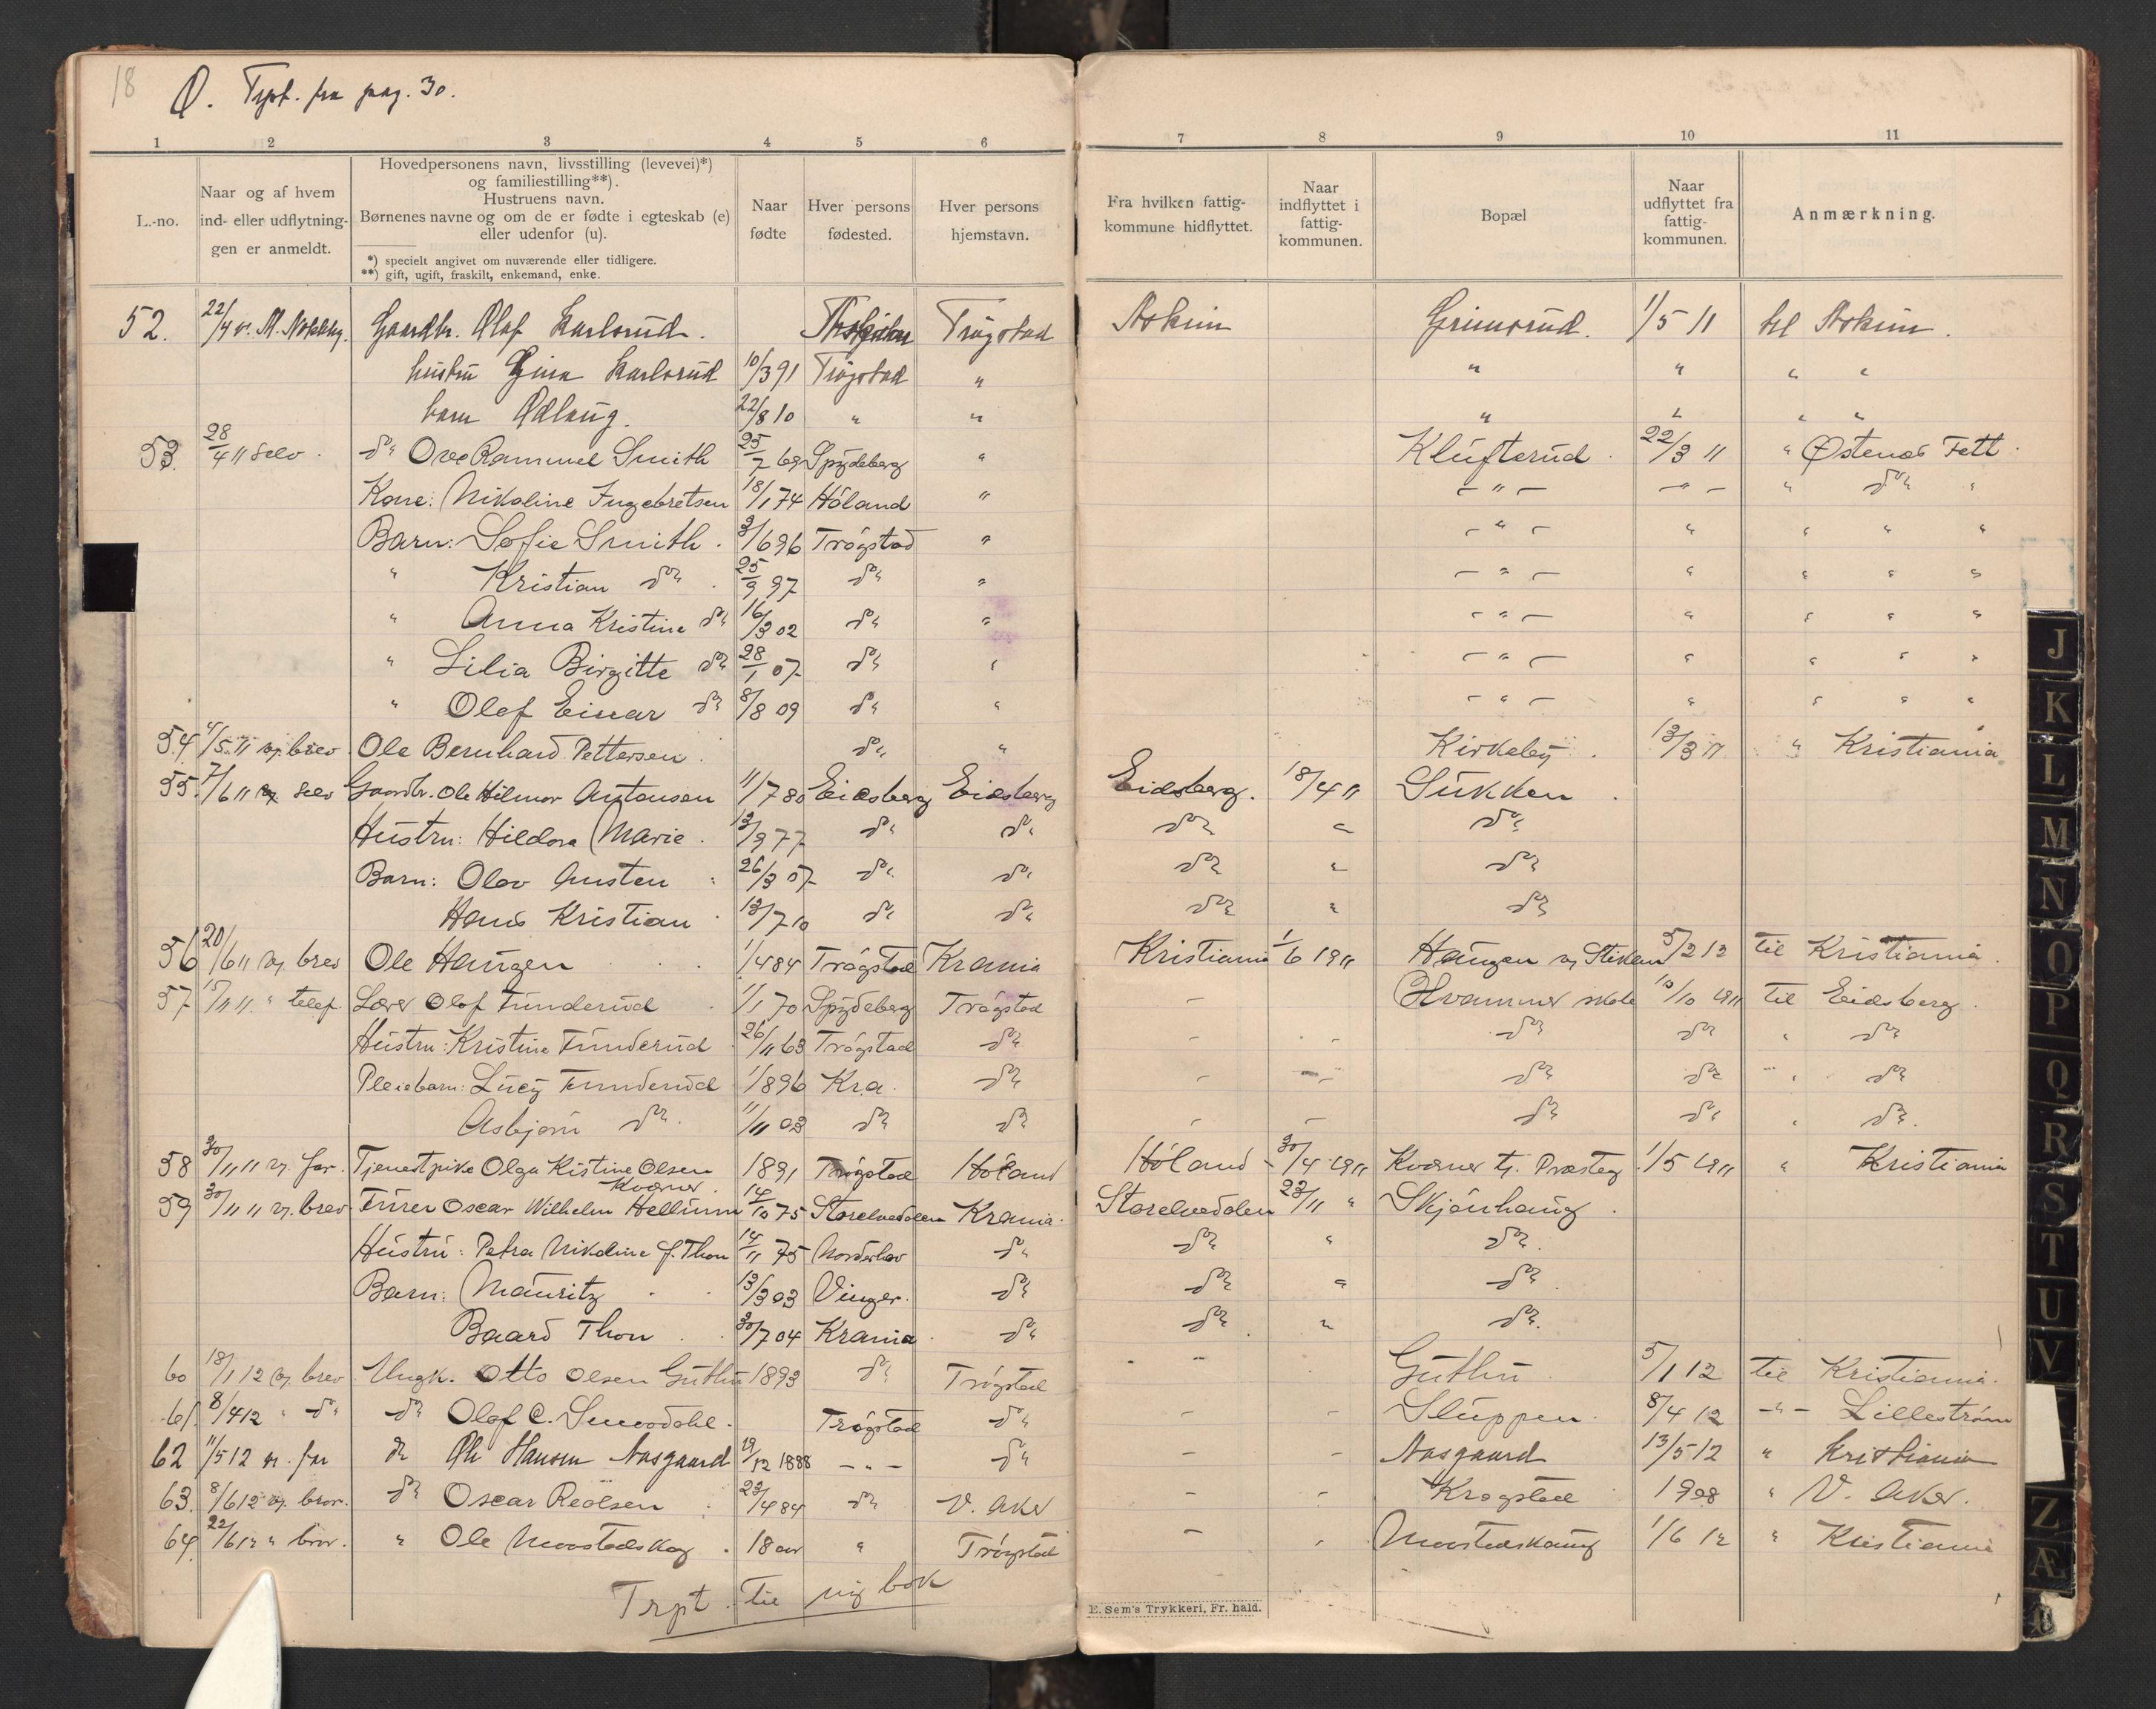 18
Ø. Trpt. fra pag. 30.
1 2 3 4 5 6 7 8 9 10 11
L.-no.
Naar og af hvem ind- eller udflytningen er anmeldt.
Hovedpersonens navn, livsstilling (levevei)*)
og familiestilling**).
Hustruens navn.
Børnenes navne og om de er fødte i egteskab (e)
eller udenfor (u).
*) specielt angivet om nuværende eller tidligere.
**) gift, ugift, fraskilt, enkemand, enke.
Naar fødte
Hver persons fødested.
Hver persons hjemstavn.
Fra hvilken fattigkommune hidflyttet.
Naar indflyttet i fattigkommunen.
Bopæl
Naar udflyttet fra fattigkommunen.
Anmærkning.
52. 22/4 v. M. Gaardbr. Olaf Karlsrud. Trøgstad Askim Grimsrud. 1/5 11 til Askim.
hustru Gina Karlsrud 10/3 91 Trøgstad " " " " "
barn Odlaug. 22/8 10 " " " " " "
53. 28/4 11 selv. do Ove Rammel Smith 25/7 69 Spydeberg " Klufterud. 22/3 11 " Østenøs Fett.
Kone: Nikoline Ingebretsen 18/1 74 Høland " – " – – " – " do "
Barn: Sofie Smith. 3/6 96 Trøgstad " – " – " " " "
" Kristian do. 25/9 97 do " – " – " " " "
" Anna Kristine do 16/3 02 do " – " – " " " "
" Lilia Birgitte do 28/1 07 do " – " – " " " "
" Olaf Einar do 8/8 09 do " – " – " " " "
54. 4/5 11 v. brev. Ole Bernhard Pettersen. do " Kirkeby. 13/3 11 " Kristiania
55. 7/6 11 selv Gaardbr. Ole Hilmar Antonsen 11/7 80 Eidsberg Eidsberg Eidsberg. 18/4 11 Sukken.
Hustru: Hildora Marie. 13/9 77 do do do " do
Barn: Olav Austen 26/3 07 do do do " do
Hans Kristian 13/7 10 do do do " do
56 20/6 11 v. brev Ole Haugen 1/4 84 Trøgstad Krania Kristiania 1/6 1911 Haugen v. Stiklen 5/2 12 til Kristiania.
57 15/11 11. " telef. Lærer Olaf Funderud 1/1 70 Spydeberg Trøgstad – Hvammer skole 10/10 1911 til Eidsberg.
Hustru: Kristine Funderud 26/11 63 Trøgstad do – – do do " do
Pleiebarn: Lucy Funderud 1/8 96 Kra. do – – do do " do
Asbjørn do. 11/11 03 do do – – do do " do.
58 30/11 11 v. far. Tjenestpike Olga Kistine Olsen Kværner. 1891 Trøgstad Høland Høland – 30/4 1911 Kværner tj. Præsteg. 1/5 1911 " Kristiania
59 30/11 11 v. brev. Furer Oscar Wilhelm Hellum 14/10 75 Storelvedalen Krania. Storelvedalen 23/11 " Skjønhaug.
Hustru: Petra Nikoline f. Thon 14/11 75 Norderhov do do " do.
Barn: Mauritz 13/3 03 Vinger. do do " do.
Baard Thon 30/7 04 Krania do do " do.
60 18/1 12 v. brev Ungk. Otto Olsen Guthu 1893 do Trøgstad – – Guthu 5/1 12 til Kristiania.
61. 8/4 12 " do do Olaf C. Smedahl. Trøgstad do – – Sluppen. 8/4 12 – " – Lillestrøm
62 11/5 12 v. far do Ole Hansen Aasgaard 19/12 1888 – " – do – – Aasgaard 13/5 12 " Kristiania
63. 8/6 12 v. bror. do Oscar Reolsen 23/4 84 do V. Aker – – Kragstad 1908 " V. Aker.
64. 22/6 12 " bror. " Ole Moostadskog 18 aar " Trøgstad – – 1/6 12 " Kristiania
Trpt. til ny bok
E. Sem's Trykkeri, Fr. hald.
J
K
L
M
N
O
P
Q
R
S
T
U
V
Z
Æ